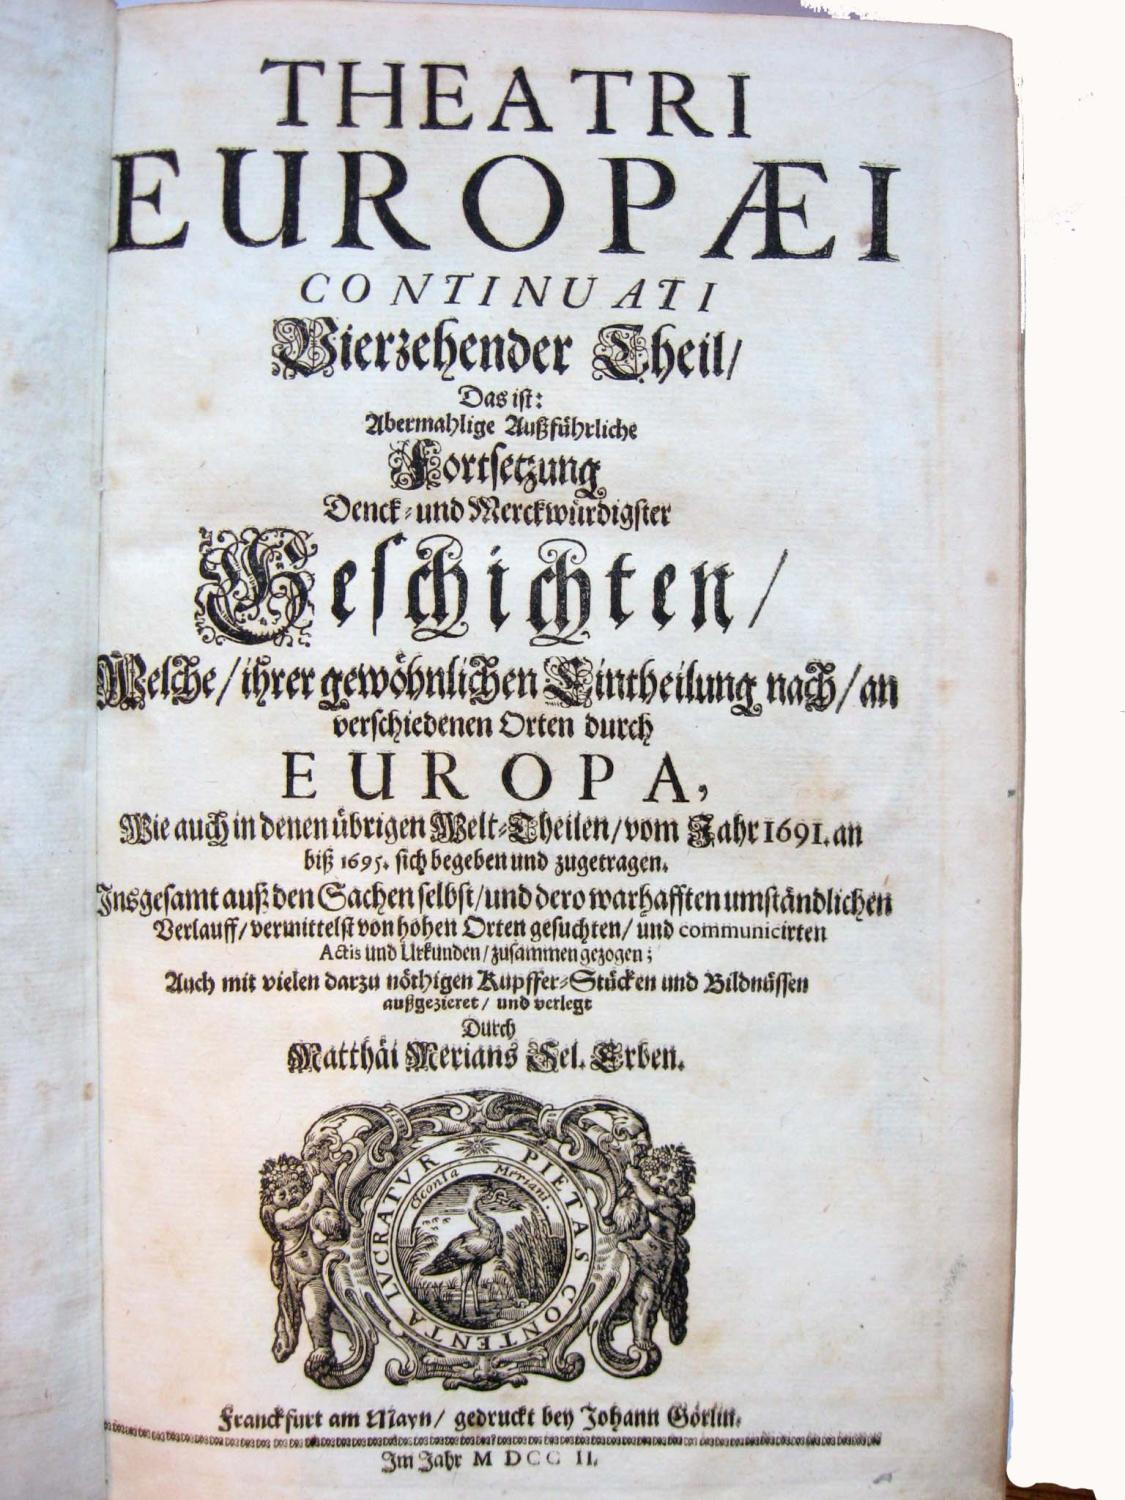 THEATRI
EUROPÆI
CONTINUATI
Vierzehender Theil/
Das ist:
Abermahlige Außführliche
Fortsetzung
Denck- und Merckwürdigster
Geschichten/
Welche/ ihrer gewöhnlichen Eintheilung nach/ an
verschiedenen Orten durch
EUROPA,
Wie auch in denen übrigen Welt-Theilen/ vom Jahr 1691. an
biß 1695. sich begeben und zugetragen.
Insgesamt auß den Sachen selbst/ und dero warhafften umständlichen
Verlauff/ vermittelst von hohen Orten gesuchten/ und communicirten
Actis und Urkunden/ zusammen gezogen;
Auch mit vielen darzu nöthigen Kupffer-Stücken und Bildnüssen
außgezieret/ und verlegt
Durch
Matthäi Merians Sel. Erben.
PIETAS CONTENTA LVCRATVR
Ciconia Meriani.
Franckfurt am Mayn/ gedruckt bey Johann Görlin.
Im Jahr M DCC II.